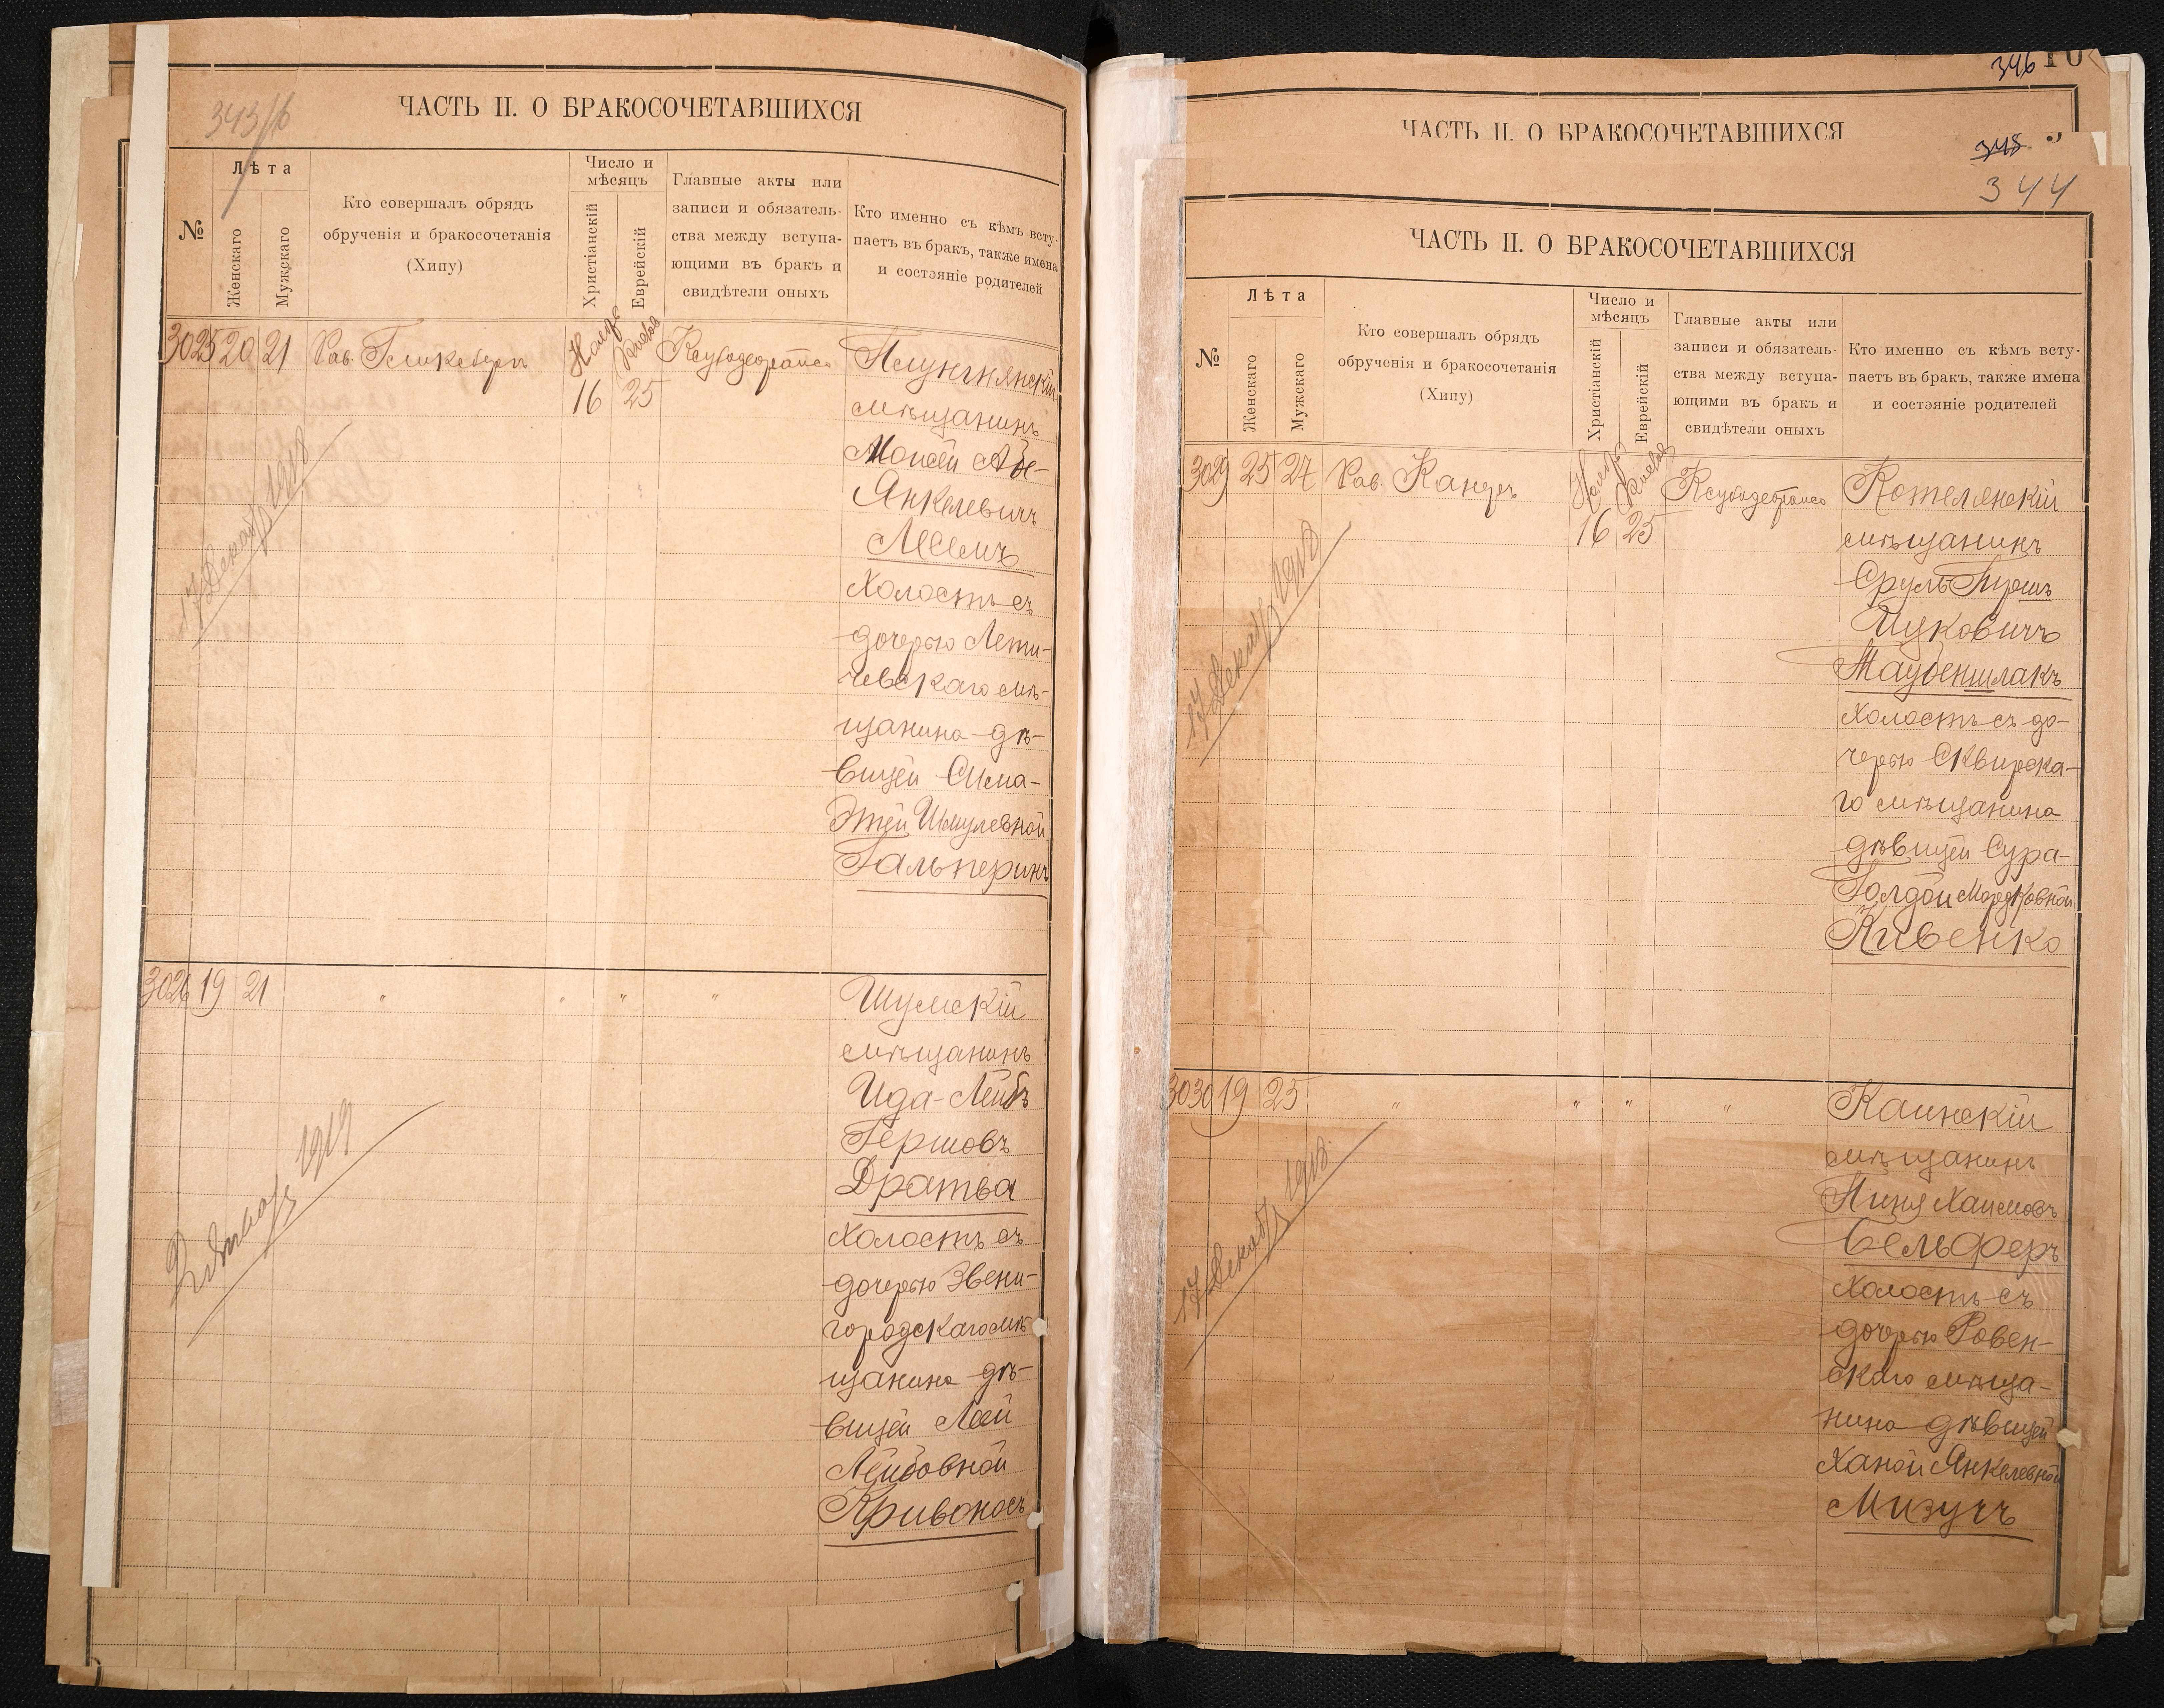 ЧАСТЬ II. О БРАКОСОЧЕТАВШИХСЯ
№
Лѣта
Женскаго
Мужскаго
Кто совершалъ обрядъ
обрученія и бракосочетанія
(Хипу)
Число и
мѣсяцъ
Христіанскій
Еврейскій
Главные акты или
записи и обязатель-
ства между вступа-
ющими въ бракъ и
свидѣтели оныхъ
Кто именно съ кѣмъ всту-
паетъ въ бракъ, также имена
и состояніе родителей
3025 20 21 Рав.
Ноября
16 25
мѣщанинъ
Моисей
Янкелевичъ
холостъ съ
дочерью Лети-
чевскаго мѣ-
щанина дѣ-
вицей Сима-
Этей Шмулевной
Гальперинъ
3026 19 21 " " " "
Шумскій
мѣщанинъ
Ида-Лейбъ
Гершовъ
Дратва
Холостъ съ
дочерью Звени-
городскаго мѣ
щанина дѣ-
вицей Леей
Лейбовной
Кривоносъ
346
ЧАСТЬ II. О БРАКОСОЧЕТАВШИХСЯ
345
344
ЧАСТЬ II. О БРАКОСОЧЕТАВШИХСЯ
№
Лѣта
Женскаго
Мужскаго
Кто совершалъ обрядъ
обрученія и бракосочетанія
(Хипу)
Число и
мѣсяцъ
Христіанскій
Еврейскій
Главные акты или
записи и обязатель-
ства между вступа-
ющими въ бракъ и
свидѣтели оныхъ
Кто именно съ кѣмъ всту-
паетъ въ бракъ, также имена
и состояніе родителей
3029 25 27 Рав.
Ноября
16 25
Котелянскій
мѣщанинъ
Сруль
Ицковичъ
Таубеншлакъ
холостъ съ до-
черью Сквирска-
го мѣщанина
дѣвицей Сура-
Голдой Мордковной
Кивенко
17 Декабр 1918
3030 19 25 " " " "
Каинскій
мѣщанинъ
Пиня Хаимовъ
Бельферъ
холостъ съ
дочерью Ровен-
скаго мѣща-
нина дѣвицей
Ханой Янкелевной
Мизучъ
17 Декабр 1918